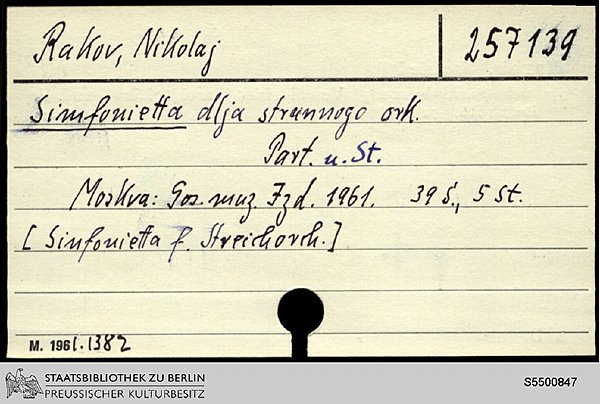 Rakov, Nikolaj 257139
Simfonietta dlja strunnogo ork.
Part. u. St.
Moskva: Gos. muz. Izd. 1961. 39 S., 5 St.
[Sinfonietta f. Streichorch.]
M. 1961.1382
STAATSBIBLIOTHEK ZU BERLIN
PREUSSISCHER KULTURBESITZ
S5500847